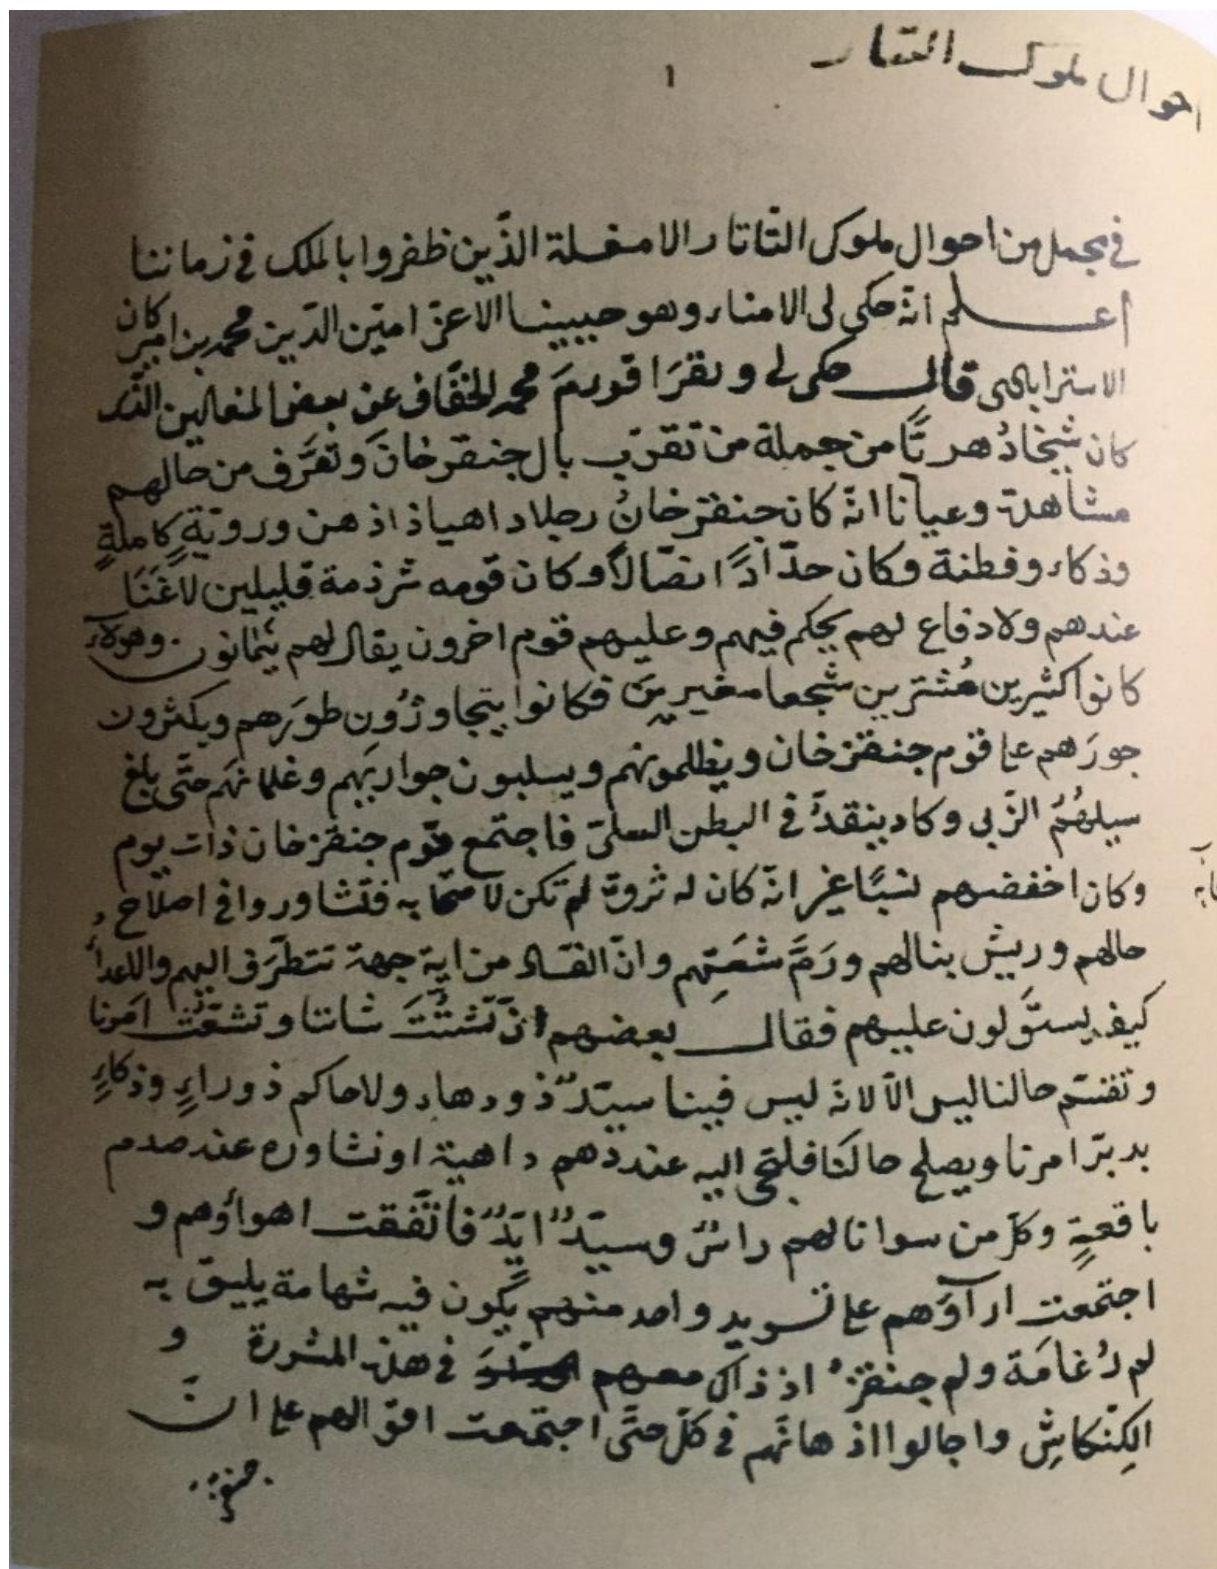 احوال ملوك التتار
١
في مجمل من احوال ملوك التّاتار الامغلة الذّين ظفروا بالملك في زماننا
اعلم انّه حكى لى الامناء وهو حبيبنا الاعزّ امين الدّين محمد بن امير كان
الاسترابا قال حكى لى محمد الخفّاف عن بعض المغاليين الّذى
كان شيخا دُهريًّا من جملة من تقرّب بال جنقزخانَ وتعرَّف من حالهم
مشاهدة وعيانا انّه كان جنقزخانُ رجلا داهيا ذا ذهن ورويّةٍ كاملةٍ
وذكاء وفطنة وكان حدّادًا نصّالًا وكان قومه شرذمة قليلين لا غَنَا
عندهم ولا دفاع لهم يحكم فيهم وعليهم قوم اخرون يقال لهم وهولاء
كانوا كثيرين شجعا مغيرين فكانوا يتجاوزُون طورَهم ويكثرون
جورَهم على قوم جنقزخان ويظلمونهم ويسلبون جواريَهم وغلمانَهم حتّى بلغ
سيلهُمُ الزّبى وكاد ينقدُّ في البطن السلى فاجتمع قوم جنقزخان ذات يوم
وكان اخفضهم نسبًا غير انّه كان له ثروة لم تكن لاصحابه فتشاوروا في اصلاح
حالهم وريش بنالهم ورَمَّ شعَثِهم وانّ الفساد من ايّة جهة تتطرّف اليهم والاعداء
كيف يستَولون عليهم فقال بعضهم انّ تشتّتَ شاننا وتشعّثَ امرنا
وتفتّم حالنا ليس الّا لانّه ليس فينا سيّدٌ ذو دهاء ولا حاكم ذو راءٍ وذكاءٍ
يدبرّ امرنا ويصلح حالَنا فلتجى اليه عند دهم داهية او نشاوره عند صدم
باقعةٍ وكلّ من سوانا لهم راسٌ وسيّدٌ ايّدٌ فاتّفقت اهواؤهم و
اجتمعت اراؤهم على تسويد واحد منهم يكون فيه شهامة يليق به
ولم جنقزُ اذ ذاك معهم في هذه المشورة و
الكِنكاشِ واجالوا اذهانَهم في كلّ حتَّى اجتمعت اقوالهم على انّ